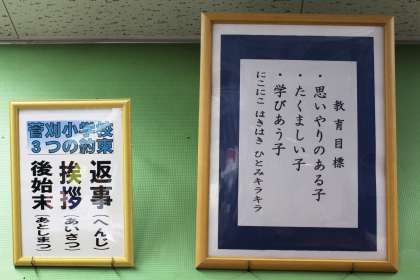 菅刈小学校
3つの約束
返事(へんじ)
挨拶(あいさつ)
後始末(あとしまつ)
教育目標
・思いやりのある子
・たくましい子
・学びあう子
にこにこ はきはき ひとみキラキラ